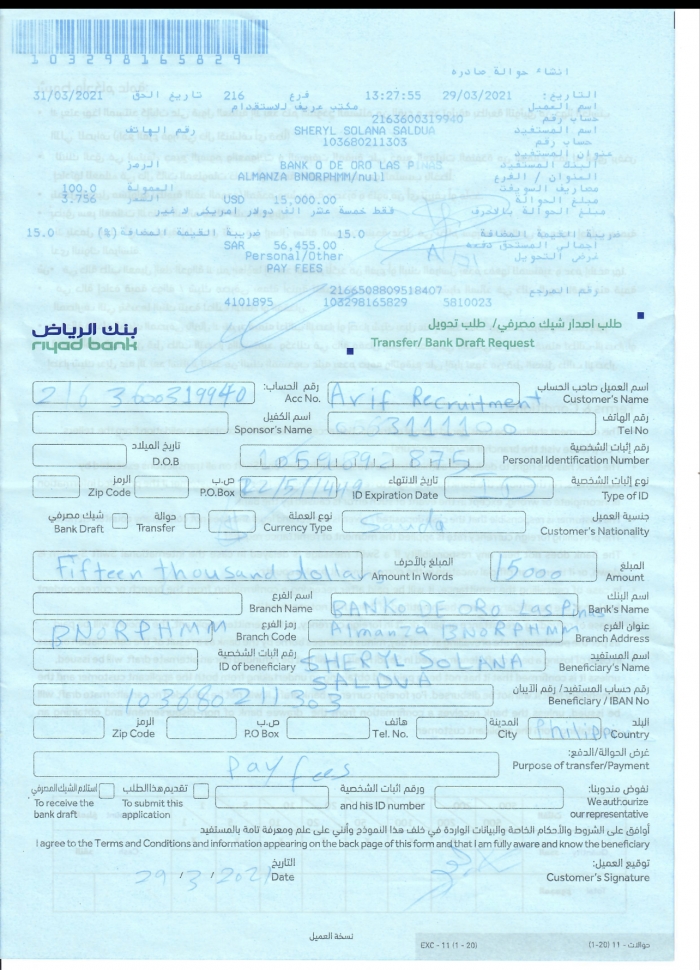 103298165829
انشاء حوالة صادره
التاريخ: 29/03/2021 13:27:55 فرع 216 تاريخ الحق 31/03/2021
اسم العميل مكتب عريف للاستقدام
حساب رقم 2163600319940
اسم المستفيد SHERYL SOLANA SALDUA رقم الهاتف
حساب رقم 103680211303
عنوان المستفيد
البنك المستفيد BANK O DE ORO LAS PINAS الرمز
العنوان / الفرع ALMANZA BNORPHMM/null
مصاريف السويفت العمولة 100.0
مبلغ الحوالة 15,000.00 USD السعر 3.756
مبلغ الحوالة بالاحرف فقط خمسة عشر الف دولار امريكي لا غير
ضريبة القيمة المضافة 15.0 ضريبية القيمة المضافة (%) 15.0
اجمالي المستحق دفعه 56,455.00 SAR
غرض التحويل Personal/Other
PAY FEES
رقم المرجع 2166508809518407
4101895 103298165829 5810023
بنك الرياض
riyad bank
طلب اصدار شيك مصرفي/ طلب تحويل
Transfer/ Bank Draft Request
اسم العميل صاحب الحساب Customer's Name Arif Recruitment رقم الحساب: Acc No. 216 3600319940
رقم الهاتف Tel No اسم الكفيل Sponsor's Name
رقم إثبات الشخصية Personal Identification Number تاريخ الميلاد D.O.B
نوع إثبات الشخصية Type of ID ID تاريخ الانتهاء ID Expiration Date ص.ب P.O.Box الرمز Zip Code
جنسية العميل Customer's Nationality نوع العملة Currency Type $ حوالة Transfer شيك مصرفي Bank Draft
المبلغ Amount 15000 المبلغ بالأحرف Amount In Words Fifteen thousand dollar
اسم البنك Bank's Name BANKO DE ORO Las Pinas اسم الفرع Branch Name
عنوان الفرع Branch Address Almanza BNORPHMM رمز الفرع Branch Code BNORPHMM
اسم المستفيد Beneficiary's Name SHERYL SOLANA SALDUA رقم اثبات الشخصية ID of beneficiary
رقم حساب المستفيد/ رقم الآيبان Beneficiary / IBAN No 103680211303
البلد Country Philippi المدينة City هاتف Tel. No. ص.ب P.O Box الرمز Zip Code
غرض الحوالة/الدفع: Purpose of transfer/Payment Pay fees
نفوض مندوبنا: We authourize our representative ورقم اثبات الشخصية and his ID number تقديم هذا الطلب To submit this application استلام الشيك المصرفي To receive the bank draft
أوافق على الشروط والأحكام الخاصة والبيانات الواردة في خلف هذا النموذج وأنني على علم ومعرفة تامة بالمستفيد
I agree to the Terms and Conditions and information appearing on the back page of this form and that I am fully aware and know the beneficiary
توقيع العميل: Customer's Signature التاريخ Date 29/3/2021
نسخة العميل
EXC - 11 (1 - 20) حوالات - 11 (20-1)